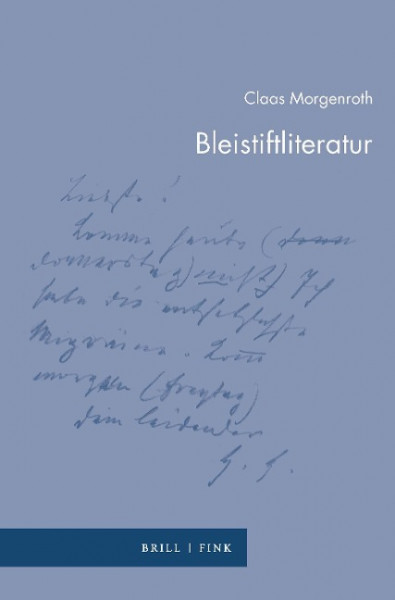 Claas Morgenroth
Bleistiftliteratur
Liebste!
Komme heute
donnerstag) nicht) Ich
habe die entsetzlichste
Migräne. Komm
morgen (freytag)
Dein leidender
BRILL | FINK